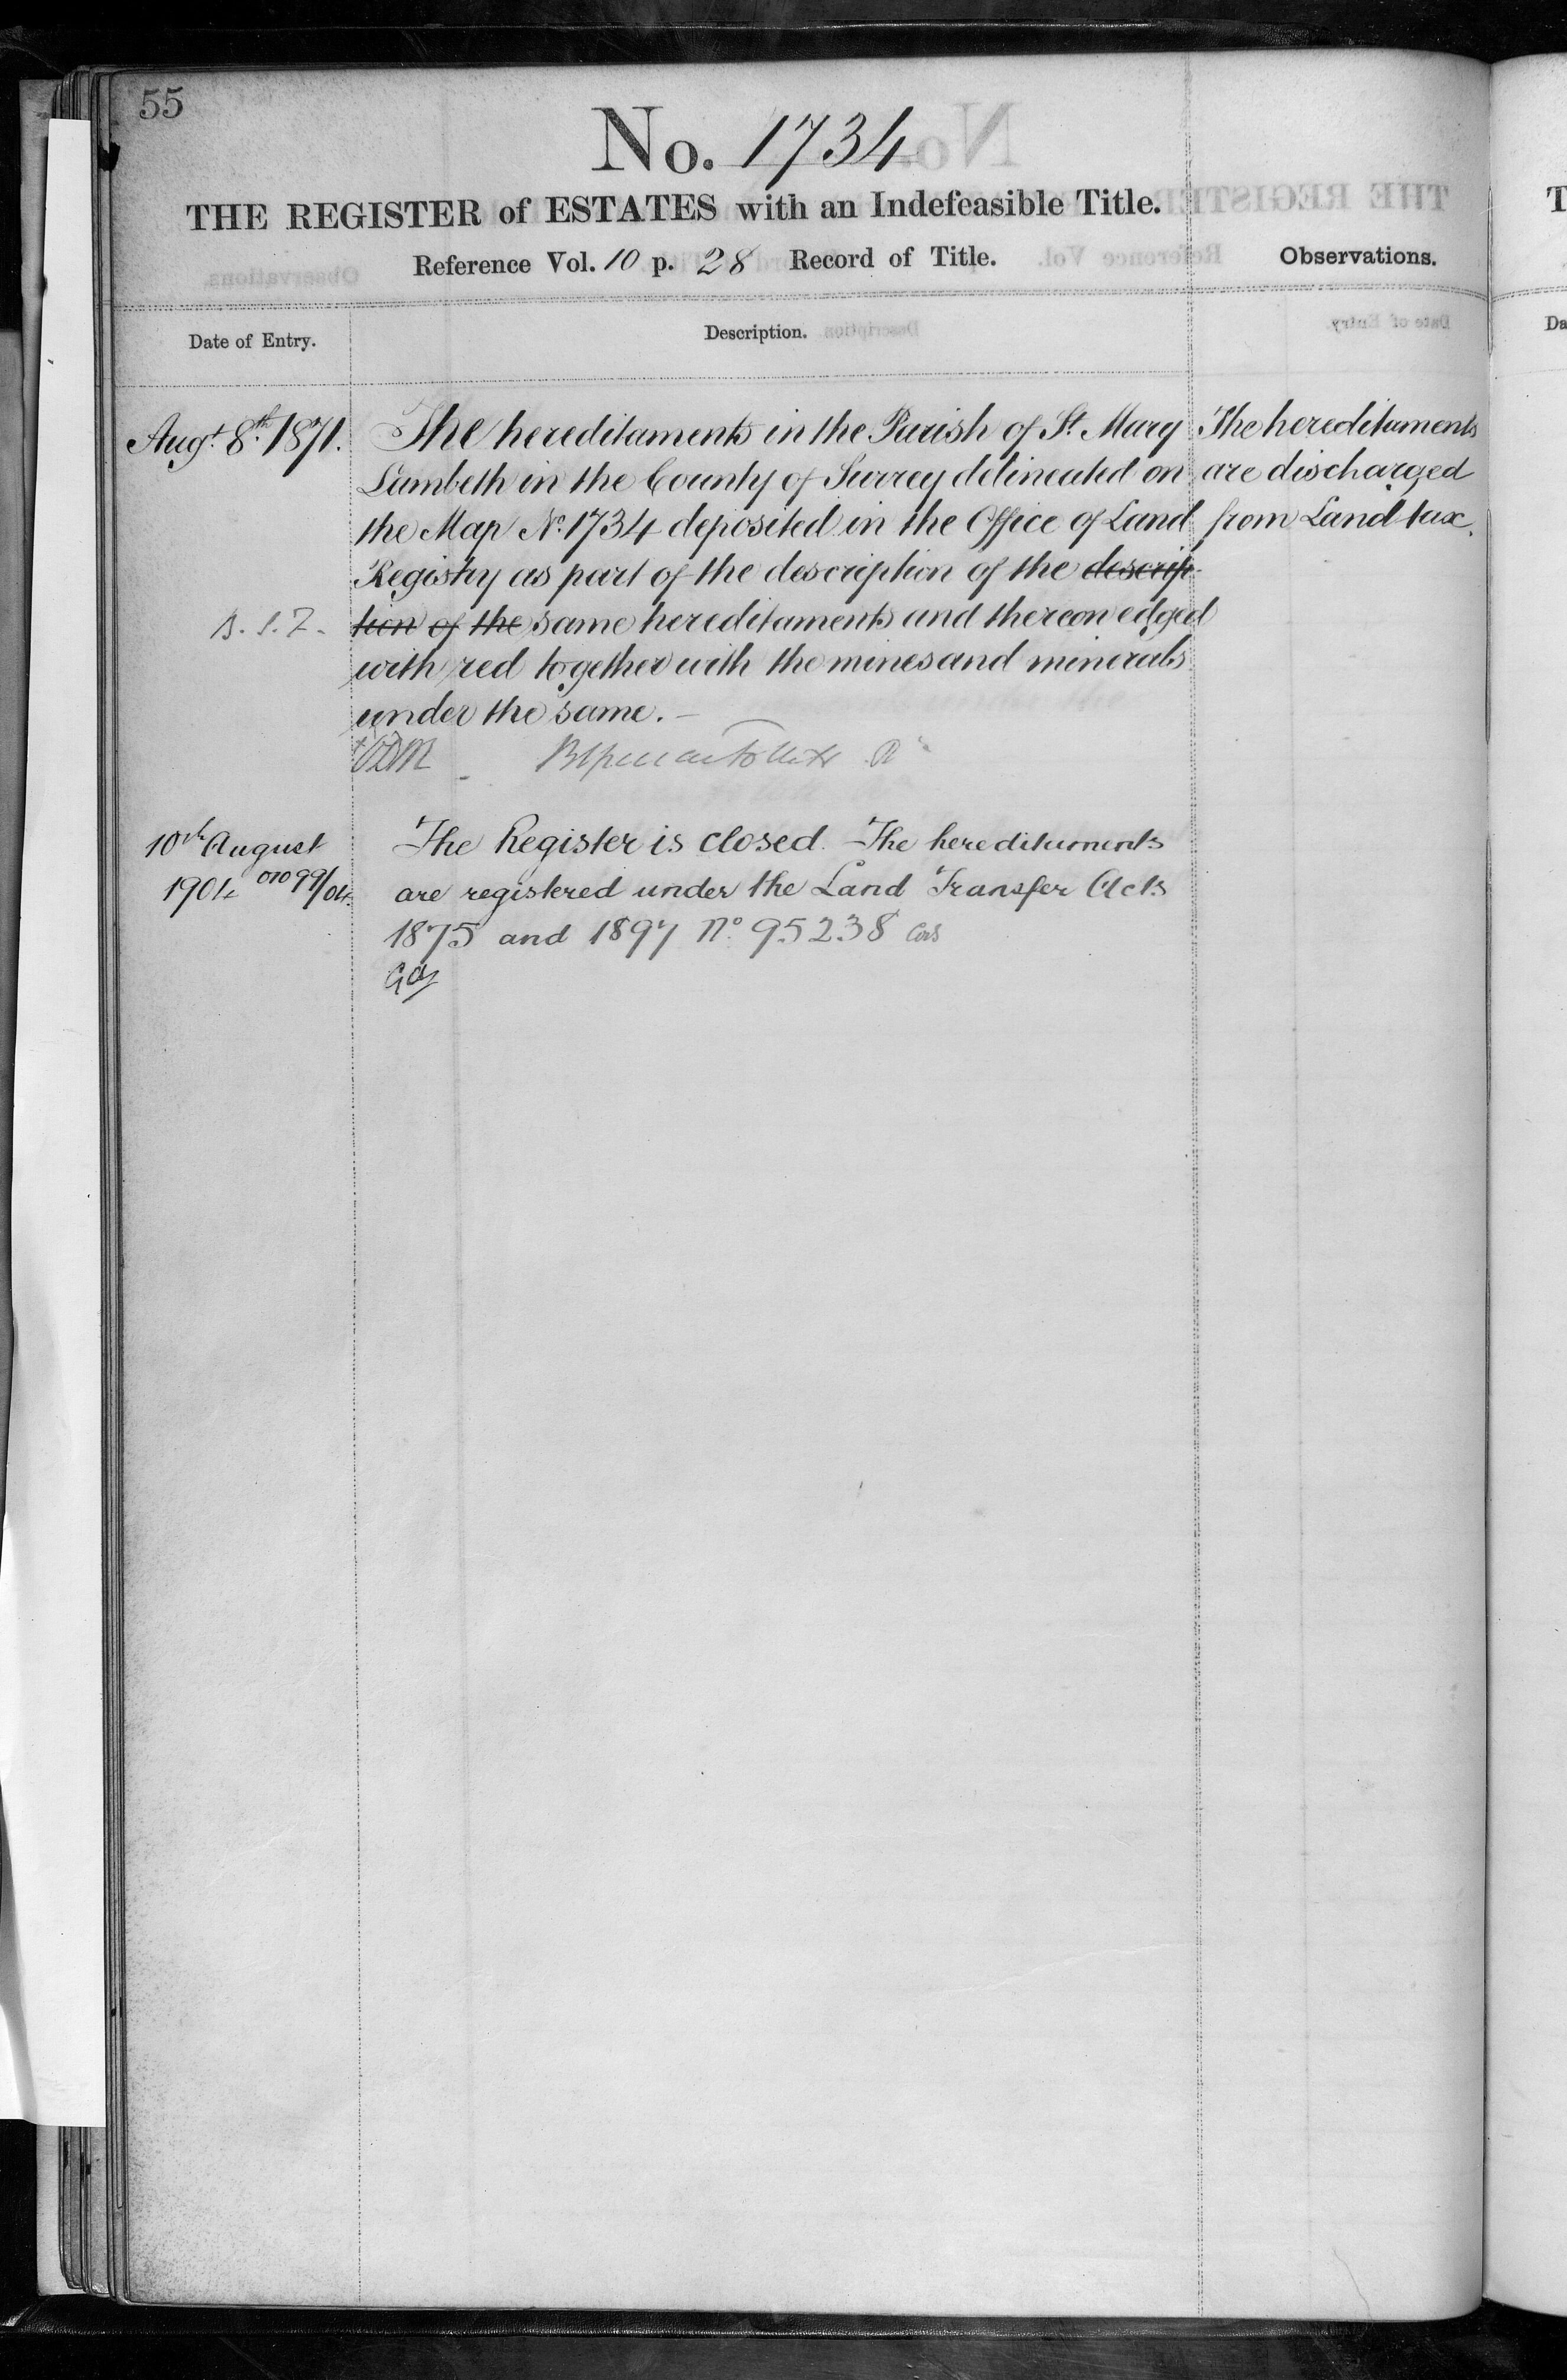 55
No. 1734
THE REGISTER of ESTATES with an Indefeasible Title.
Reference Vol. 10 p. 28 Record of Title.
Observations.
Date of Entry.
Description.
Augt. 8th. 1871.
The hereditaments in the Parish of St. Mary
Lambeth in the County of Surrey delineated on
the Map No. 1734 deposited in the Office of Land
Registry as part of the description of the descrip-
tion of the same hereditaments and thereon edged
with red together with the mines and minerals
under the same.
The hereditaments
are discharged
from Land tax.
10th August
1904 01099/04
The Register is closed. The hereditaments
are registered under the Land Transfer Acts
1875 and 1897 No. 95238